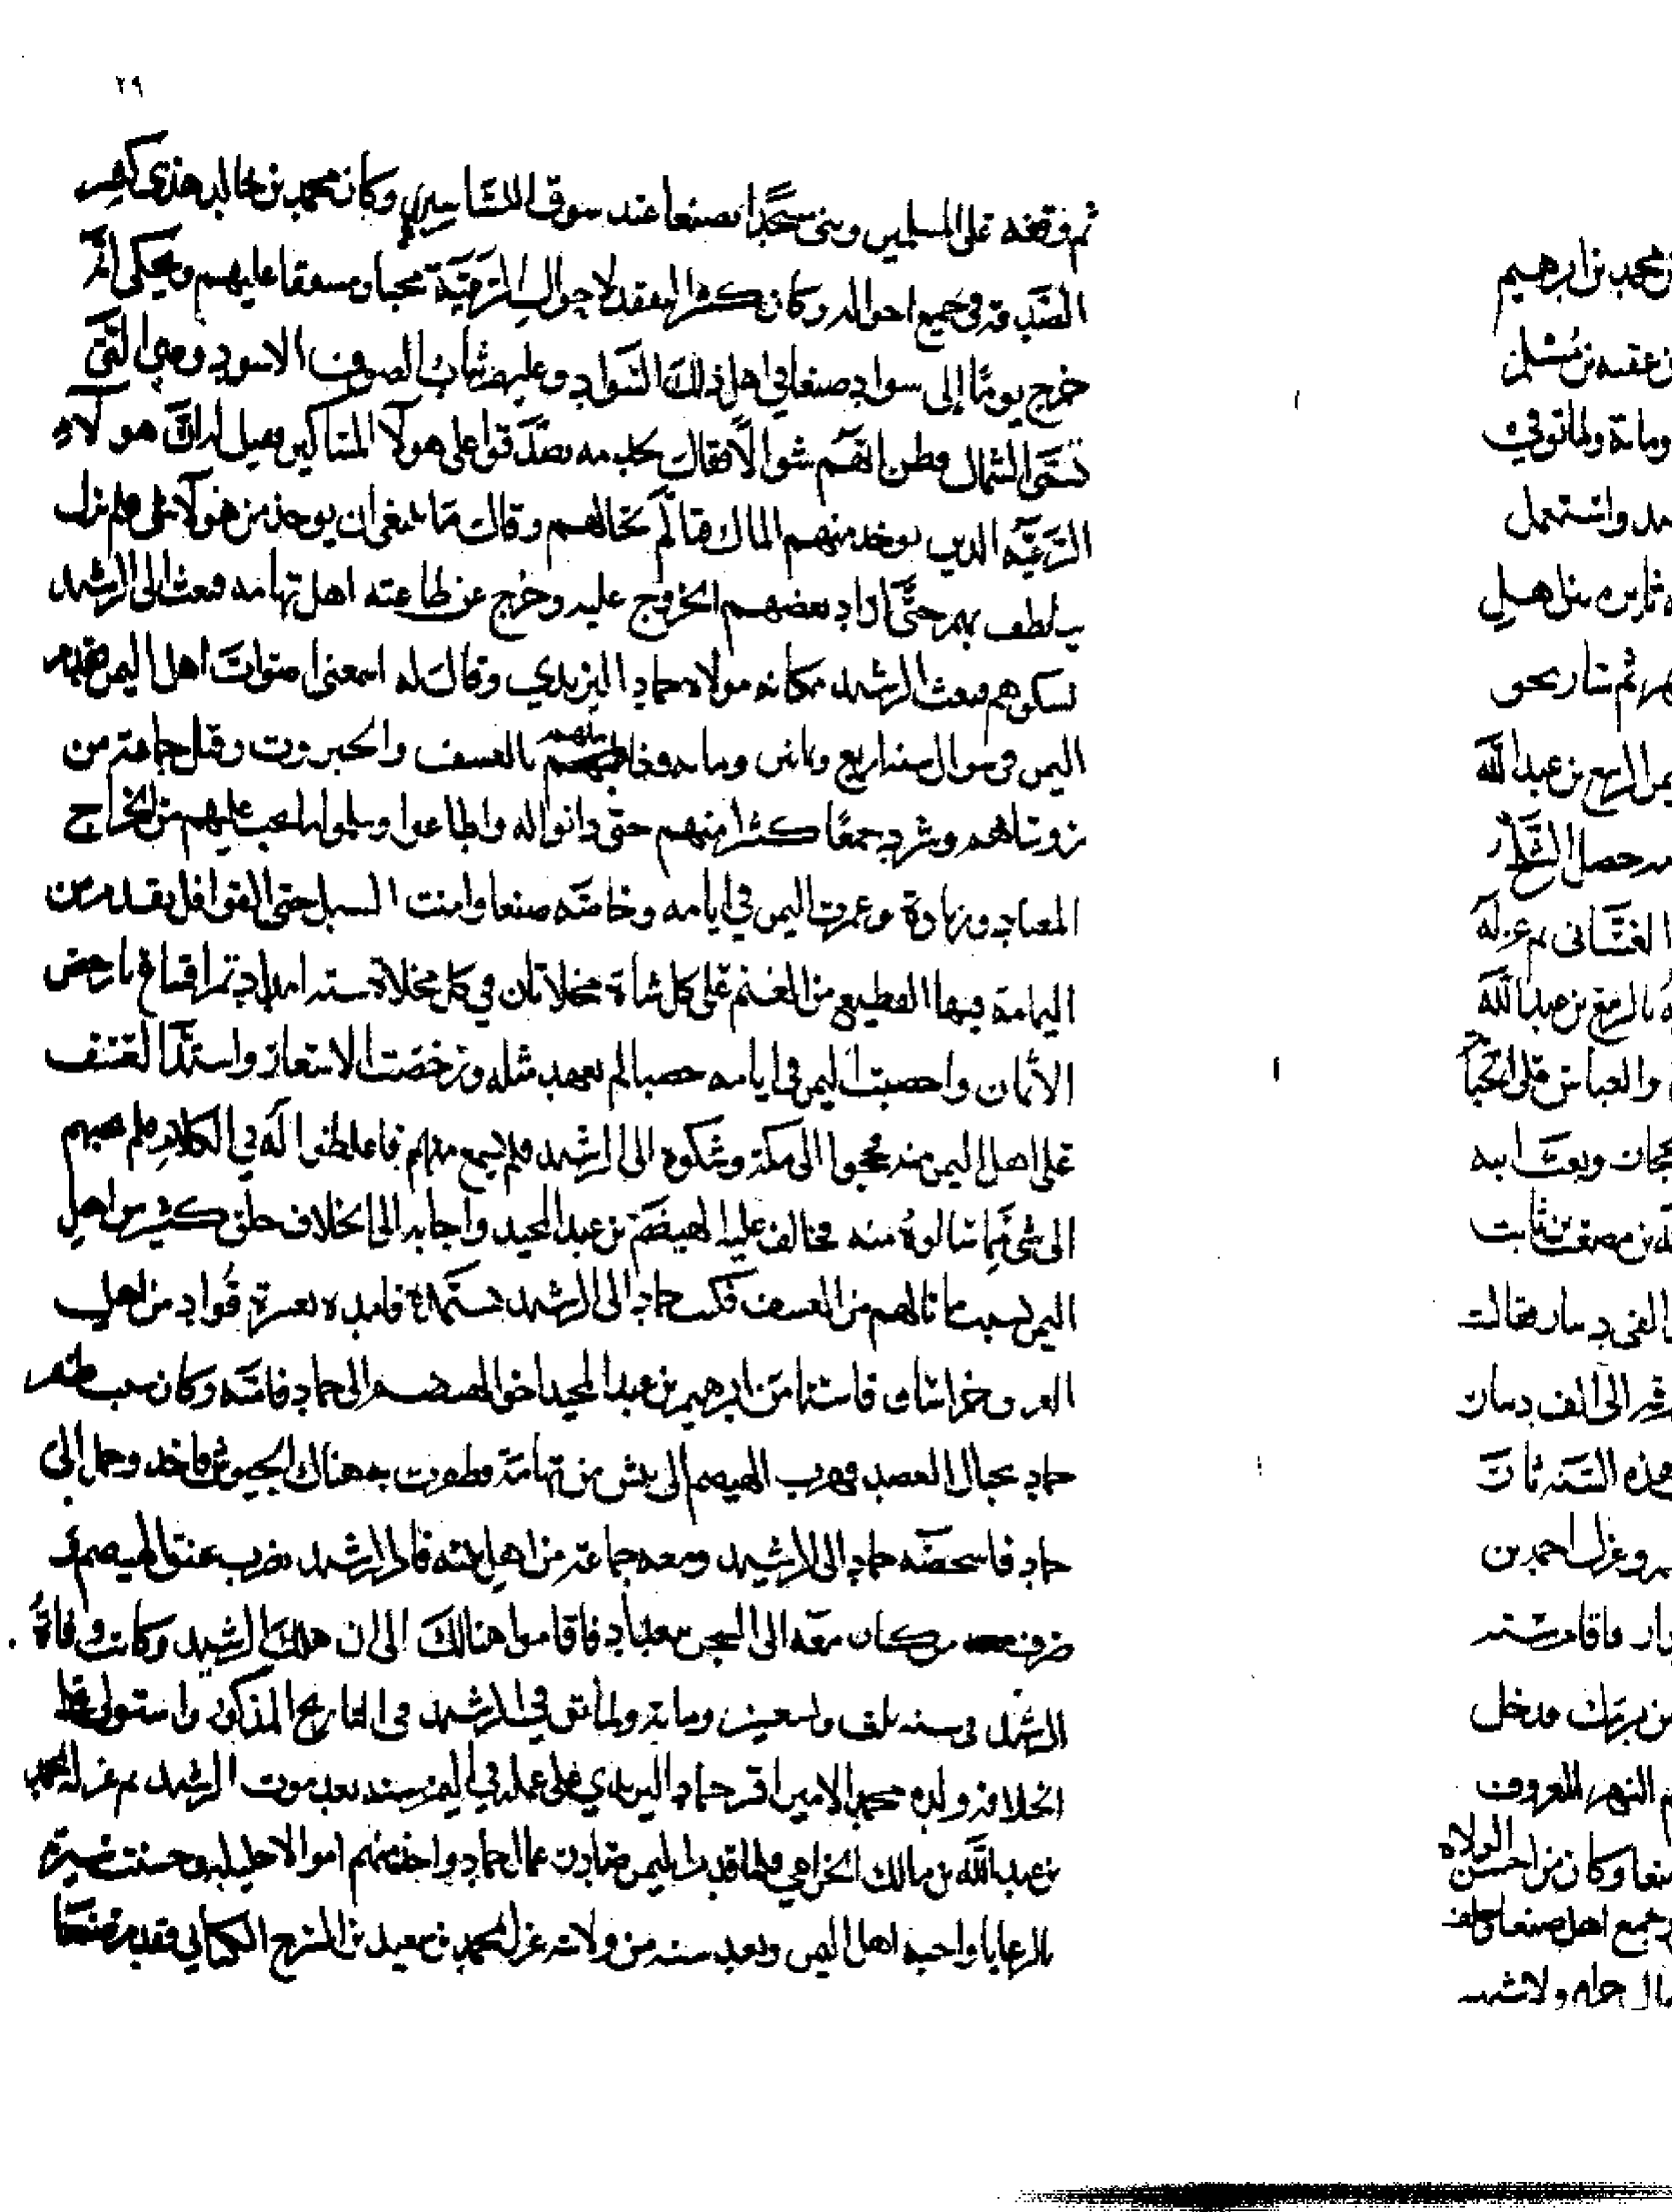 ٢٩
ثم وقفه على المسلمين وبنى مسجدا بصنعا عند سوق وكان محمد بن خالد هذا كثير
الصدقه في جميع احواله وكان كثير التفقد لاحوال الرعية محبا مشفقا عليهم ويحكى انه
خرج يومًا إلى سواد صنعا في اهل ذلك السواد وعليهم ثياب الصوف الاسود وهي التي
تسمى الشمال فظن انهم سُوَّالا فقال لخدمه تصدقوا على هولآ المساكين فقيل له ان هولآء
الرعيّه الدين يوخد منهم المال فتألم لحالهم وقال ما ينبغي ان يوخذ من هولآ شي فلم يزل
يلطف بهم حتى اراد بعضهم الخروج عليه وخرج عن طاعته اهل تهامه فبعث الى الرشيد
يسكوهم فبعث الرشيد مكانه مولاه حماد البزيدي وقال له اسمعني اصوات اهل اليمن فقدم
اليمن في سوال سنه اربع وثمانين ومايه فعاملهم بالعسف والجبروت وقتل جماعة من
روساهم وشرد جمعًا كثيرا منهم حتى دانوا له واطاعوا وسلموا ما يجب عليهم من الخراج
المعتاد وزيادة وعمرت اليمن في ايامه وخاصّه صنعا وامنت السبل حتى القوافل تقدم من
اليمامة فيها القطيع من الغنم على كل شاة مخلاتان في كل مخلاة سته امداد تمرا فتباع بارخص
الأثمان واخصبت اليمن في ايامه خصبا لم يعهد مثله ورخصت الاسعار واشتد العسف
على اهل اليمن منه فحجوا الى مكة وشكوه الى الرشيد فلم يسمع منهم فاغلظوا له في الكلام فلم يجبهم
الى شي مما سالوهُ منه فخالف عليه الهيصم بن عبد المجيد واجابه الى الخلاف خلق كثير من اهل
اليمن بسبب ما نالهم من العسف فكتب حماد الى الرشيد يستمده فامده بعسرة قُواد من اهل
العراق وخراسان فاستامن ابرهيم بن عبد المجيد اخو الهيصم الى حماد فامّنه وكان سبب ظفر
حماد بجبال العضد فهرب الهيصم الى بيش من تهامة فظفرت به هناك الجيوش فاخد وحمل الى
حماد فاشخصه حماد الى الرشيد ومعه جماعة من اهل بيته فامر الرشيد بضرب عنق الهيصم ثم
صرف من كان معه الى السجن ببغداد فاقاموا هنالك الى ان هلك الرشيد وكانت وفاة
الرشيد في سنه ثلث وتسعين وماية ولما توفي الرشيد في التاريخ المذكور واستولى على
الخلافه ولده محمد الامين اقر حماد البزيدي على عمله في اليمن سنه بعد موت الرشيد ثم عزله بمحمد
بن عبد الله بن مالك الخزاعي فلما قدم اليمن صادر عمال حماد واخذ منهم اموالا جليله وحسنت سيرته
بالرعايا واحبه اهل اليمن وبعد سنه من ولايته عزله بمحمد بن سعيد بن السرح الكناني فقدم صنعا
بن محمد بن ابرهيم
وماية ولما توفي
واستعمل
ثم سار نحو
الربيع بن عبد الله
الغساني ثم عزله
بالربيع بن عبد الله
والعباس
وبعث ابنه
بن مصعب بن ثابت
الفي دينار فقالت
الى الف دينار
هذه السنه ثارت
وعزل احمد بن
فاقام سنه
بن برمك فدخل
النهر المعروف
صنعا وكان من احسن الولاه
جميع اهل صنعا